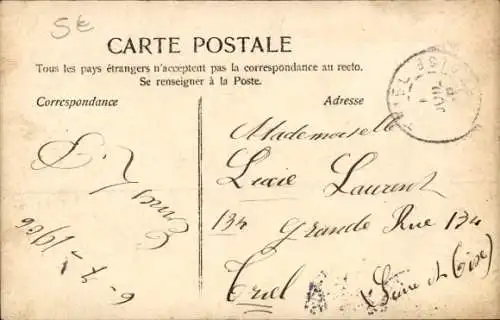 5€
CARTE POSTALE
Tous les pays étrangers n'acceptent pas la correspondance au recto.
Se renseigner à la Poste.
Correspondance
Adresse
Mademoiselle
Lucie Laurent
134 Grande Rue 134
Triel
(Seine et Oise)